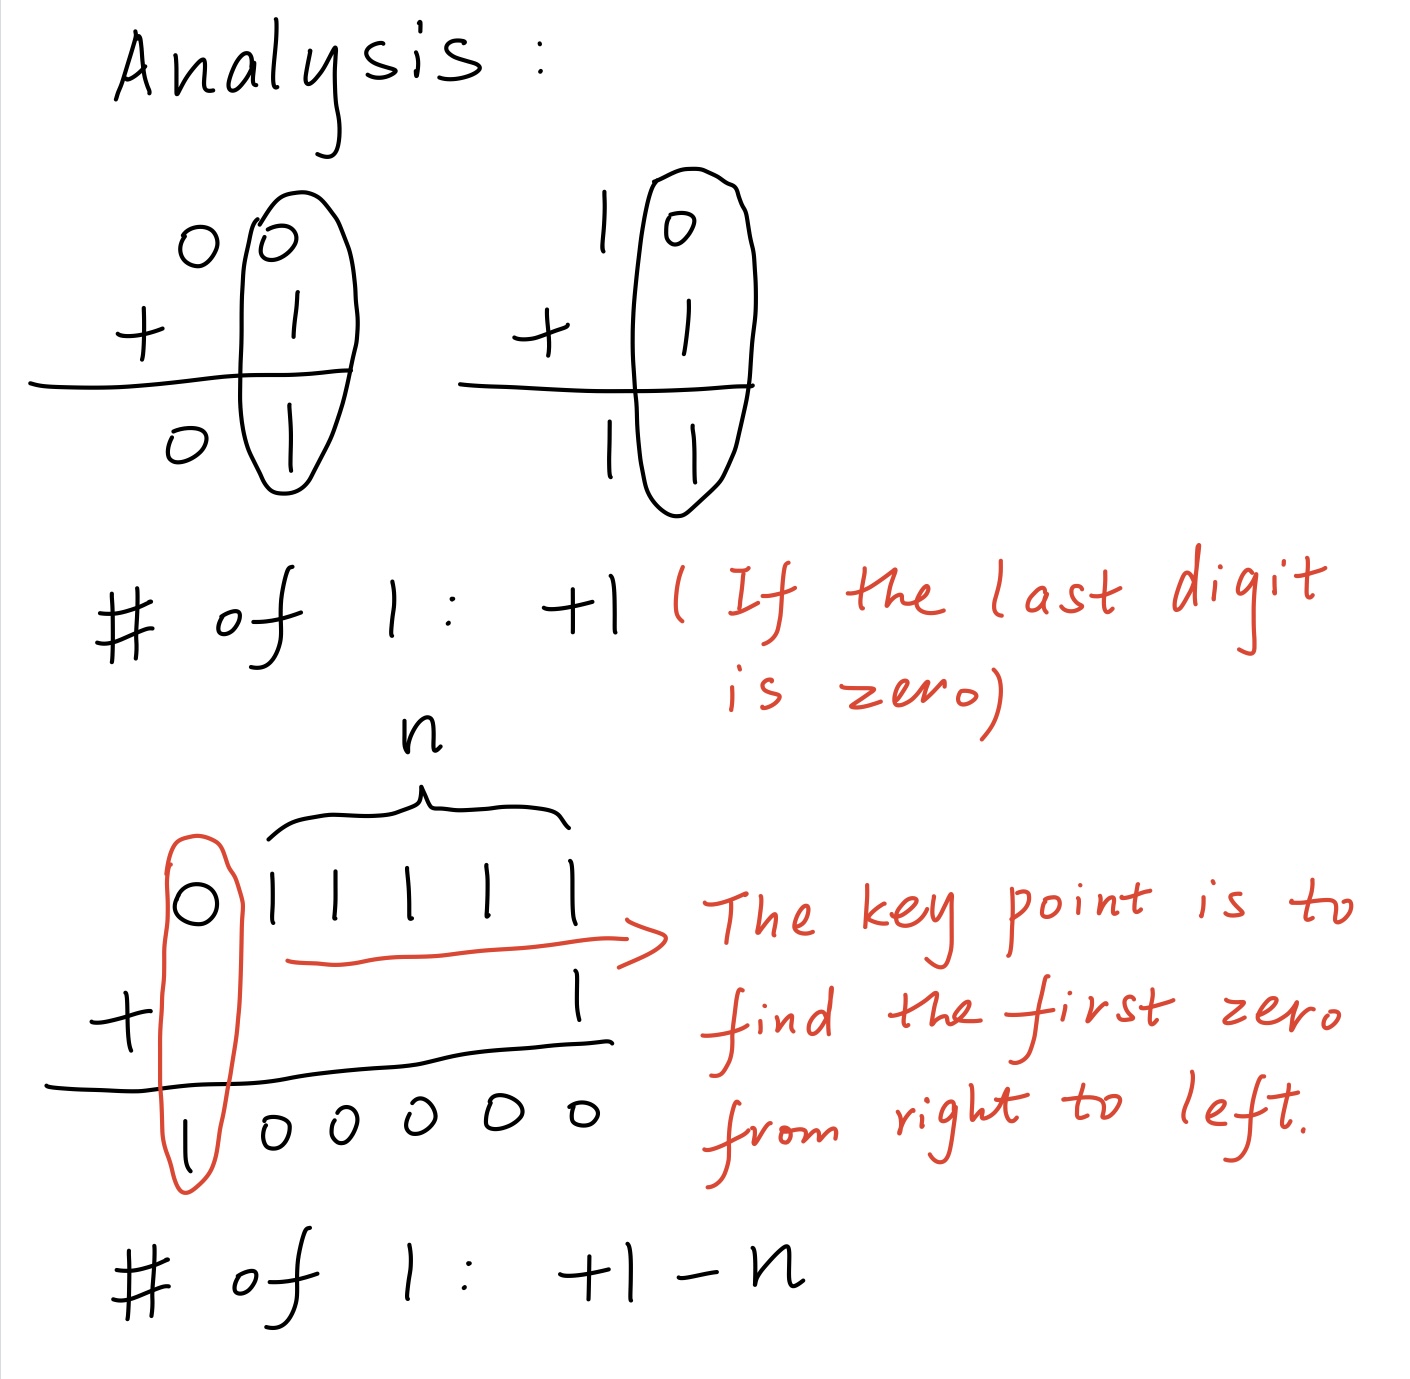 Analysis :
0 0    1 0
+ 1    + 1
0 1    1 1
# of 1 : +1 ( If the last digit
is zero)
n
0 1 1 1 1 1
The key point is to
+ 1
find the first zero
1 0 0 0 0 0
from right to left.
# of 1 : +1 - n